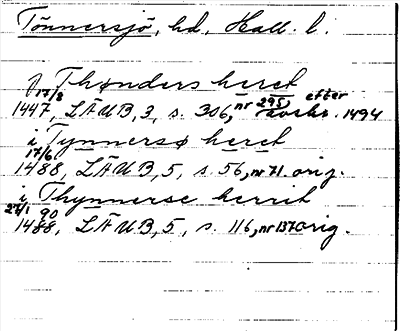 Tönnersjö, hd, Hall. l.
J Thønders heret
17/8 1447, LÄUB, 3, s. 306, nr 295) efter avskr. 1494
i Tynnersø heret
17/6 1488, LÄUB, 5, s. 56, nr 71. orig.
i Thynnerse herrit
27/1 90 1488, LÄUB, 5, s. 116, nr 137 orig.